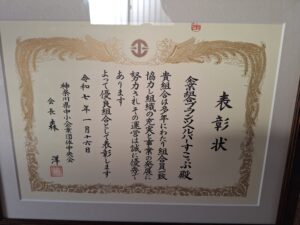 表彰状
企業組合フランクスパーすこっぷ殿
貴組合は多年にわたり組合員一致
協力し組織の充実と事業の発展に
努力されその運営は誠に優秀で
あります
よって優良組合として表彰します
令和七年一月十六日
神奈川県中小企業団体中央会
会長 森 洋